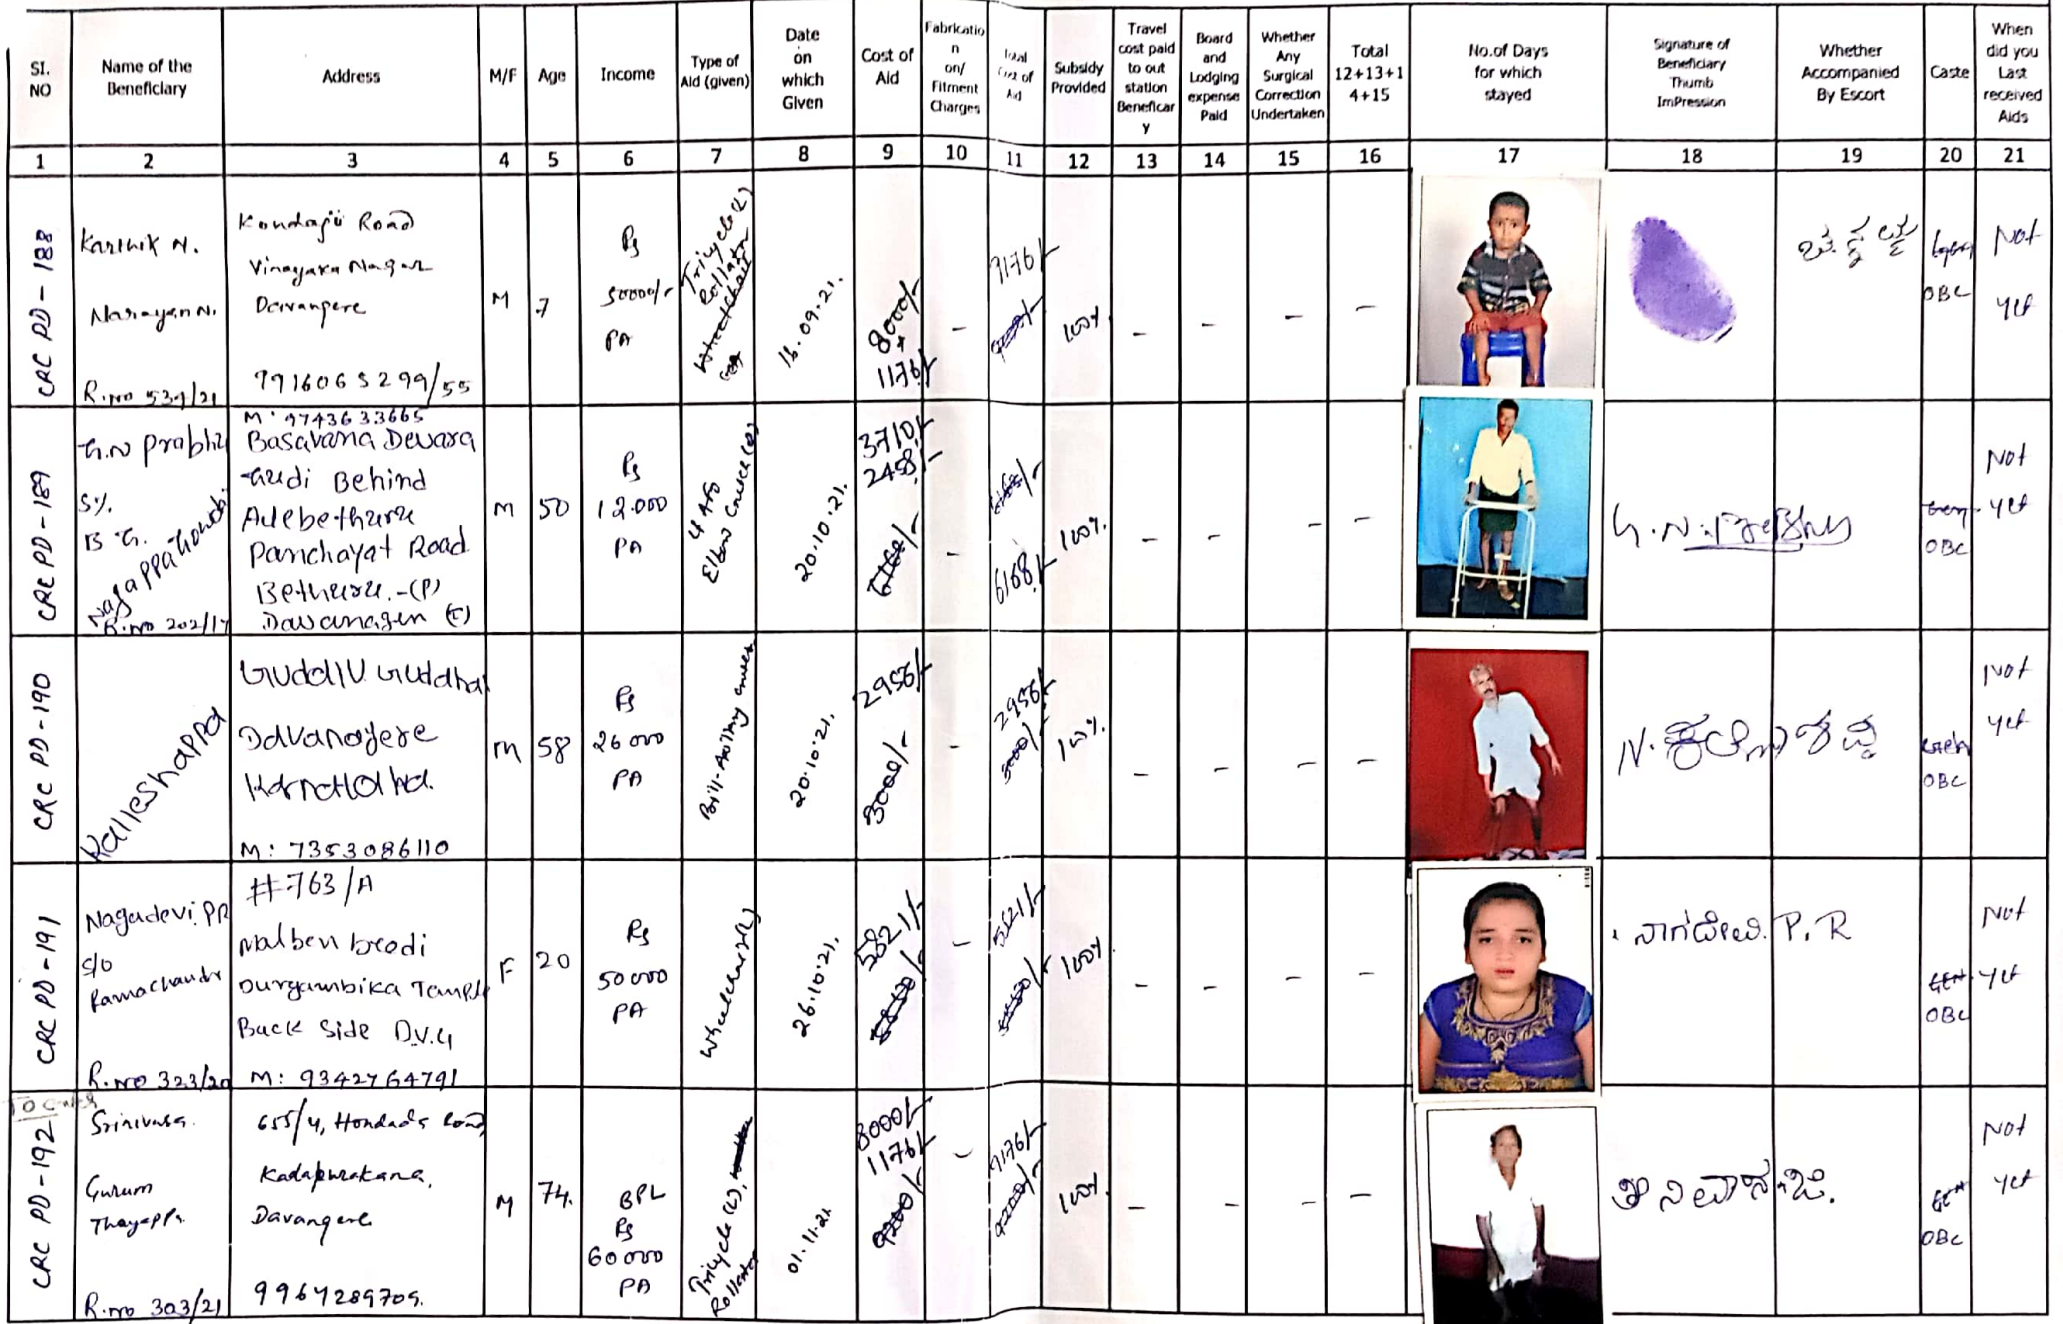 SI. NO
Name of the Beneficiary
Address
M/F
Age
Income
Type of Aid (given)
Date on which Given
Cost of Aid
Fabricatio n on/ Fitment Charges
Total Cost of Aid
Subsidy Provided
Travel cost paid to out station Beneficar y
Board and Lodging expense Paid
Whether Any Surgical Correction Undertaken
Total 12+13+1 4+15
No.of Days for which stayed
Signature of Beneficiary Thumb ImPression
Whether Accompanied By Escort
Caste
When did you Last received Aids
1 2 3 4 5 6 7 8 9 10 11 12 13 14 15 16 17 18 19 20 21
CRC PD-188
Karthik N.
Narayan N.
R.no 534/21
Kondajji Road
Vinayaka Nagar
Davangere
7916065299/55
M
7
Rs
50000/-
PA
Tricycle(L)
Rollator
16.09.21.
8000/-
+
1176/-
-
9176/-
100%
- - - -
OBC
Not
yet
CRC PD-189
G.N Prabhu
S/o
B.G.
Nagappa Gowda
R.no 202/17
M: 9743633665
Basavana Devara
Gudi Behind
Alebethuru
Panchayat Road
Bethuru.-(P)
Davanagere (T)
M
50
Rs
12.000
PA
Elbow Crutch(2)
20.10.21.
3710/-
2458/-
6168/-
-
6168/-
100%
- - - -
OBC
Not
yet
CRC PD-190
Kalleshappa
Davanagere
Karnataka.
M: 7353086110
M
58
Rs
26000
PA
20.10.21.
2956/-
3000/-
-
2956/-
3000/-
100%
- - - -
OBC
Not
yet
CRC PD-191
Nagadevi. PR
S/o
Ramachandr
R.no 323/20
#763/A
Nalben beedi
Durgambika Temple
Back Side D.V.G
M: 9342764791
F
20
Rs
50000
PA
Wheelchair(L)
26.10.21.
5821/-
-
5821/-
100%
- - - -
ನಾಗದೇವಿ. P.R
GEN
OBC
Not
yet
CRC PD-192
Srinivasa.
Gurum
Thayappa
R.no 303/21
655/4, Hondada Road
Kadapurakana,
Davangere
9964289709.
M
74.
BPL
Rs
60000
PA
Tricycle(L),
Rollator
01.11.21
8000/-
1176/-
9200/-
-
9176/-
9200/-
100%
- - - -
ಶ್ರೀನಿವಾಸ.ಜಿ.
OBC
Not
yet